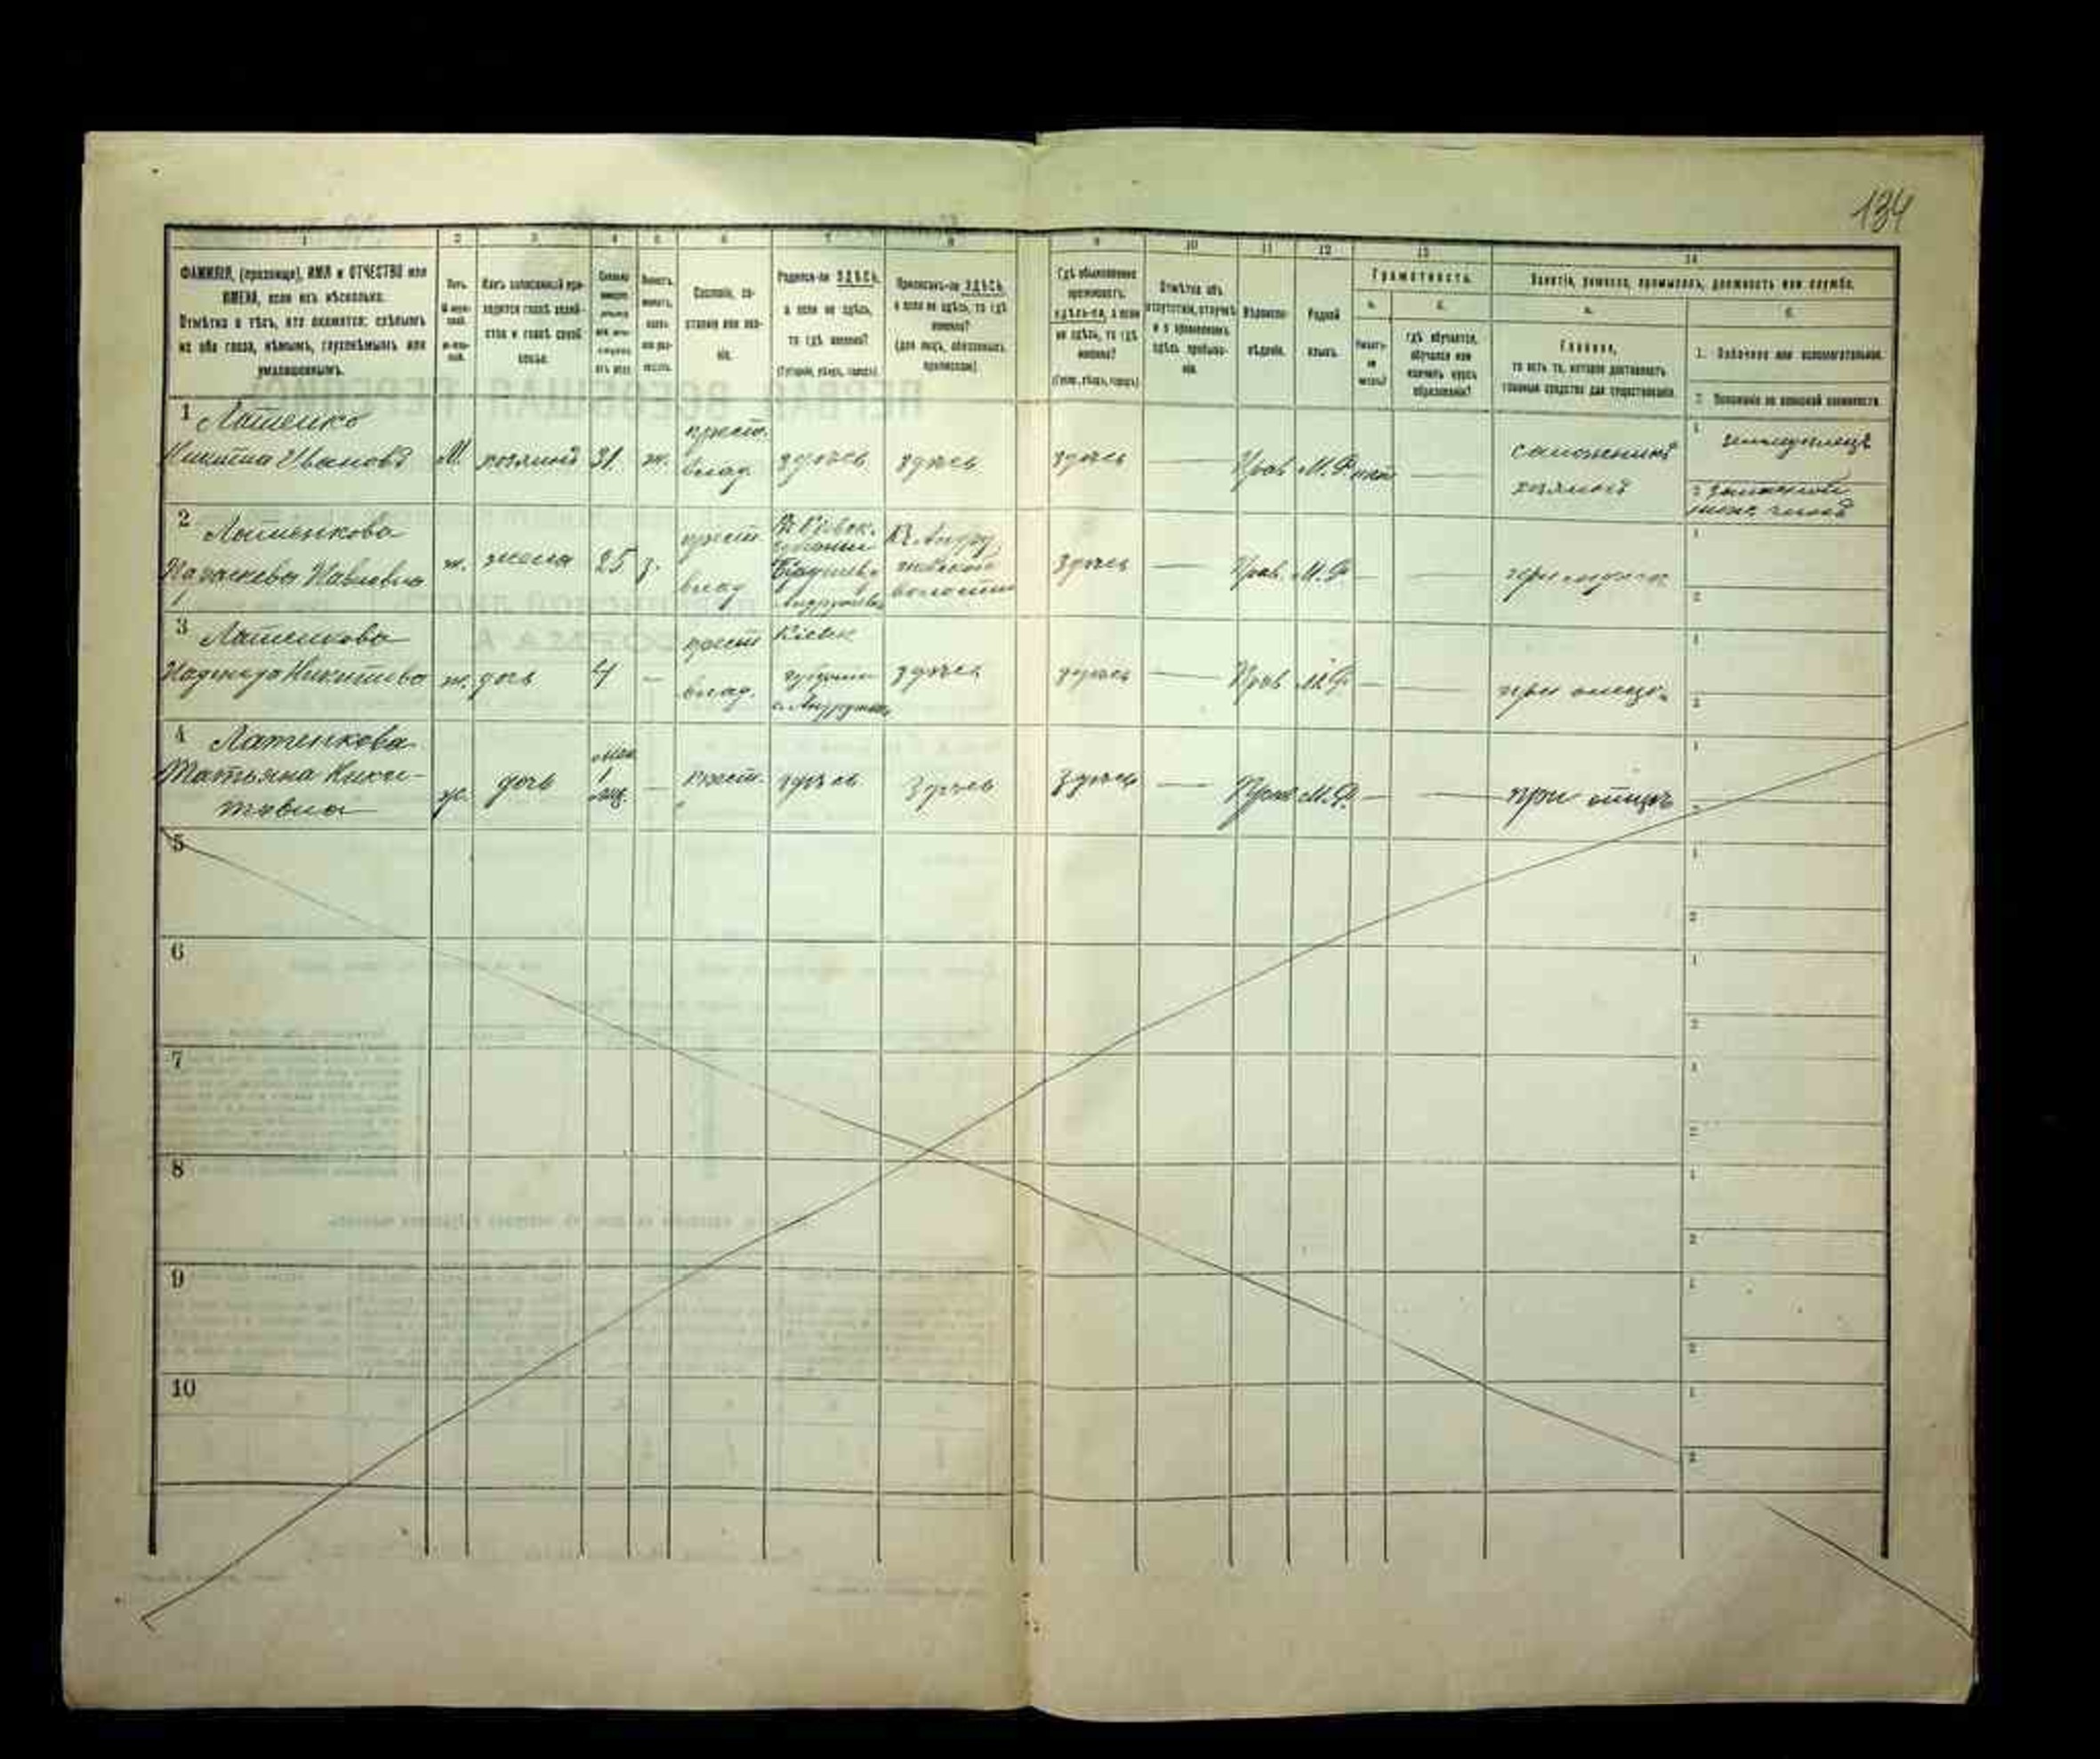 134
1 2 3 4 5 6 7 8 9 10 11 12 13 14
ФАМИЛІЯ, (прозвище), ИМЯ и ОТЧЕСТВО или
ИМЕНА, если ихъ нѣсколько.
Отмѣтка о тѣхъ, кто окажется: слѣпымъ
на оба глаза, нѣмымъ, глухонѣмымъ или
умалишеннымъ.
Полъ.
Какъ записанный при-
ходится главѣ хозяй-
ства и главѣ своей
семьи.
Сословіе, со-
стояніе или зва-
ніе.
Родился-ли ЗДѢСЬ,
а если не здѣсь,
то гдѣ именно?
(Губернія, уѣздъ, городъ)
Приписанъ-ли ЗДѢСЬ,
а если не здѣсь, то гдѣ
именно?
(для лицъ, обязанныхъ
припискою)
Гдѣ обыкновенно
проживаетъ:
здѣсь-ли, а если
не здѣсь, то гдѣ
именно?
(Губер., уѣздъ, городъ)
Отмѣтка объ
отсутствіи, отлучкѣ
и о временномъ
здѣсь пребыва-
ніи.
Вѣроиспо-
вѣданіе.
Родной
языкъ.
Грамотность.
а. б.
Умѣетъ-
ли
читать?
гдѣ обучается,
обучался или
кончилъ курсъ
образованія?
Занятіе, ремесло, промыселъ, должность или служба.
а. б.
Главное,
то есть то, которое доставляетъ
главныя средства для существованія.
1. Побочное или вспомогательное.
2. Положеніе по воинской повинности.
1 Латенко
Никита Ивановъ М. хозяинъ 31 ж. крест. влад. здѣсь здѣсь здѣсь — Прав М.Р. нѣт — сапожникъ
хозяинъ
1 земледѣлецъ
2
2 Латенкова
Параскева Павловна ж. жена 25 з. крест влад В Кіевск. губерніи здѣсь — Прав. М.Р — — при мужѣ
волости
1
2
3 Латенкова
Надежда Никитова ж. дочь 4 — крест влад. Кіевск губерніи здѣсь здѣсь — Прав М.Р — — при отцѣ
1
2
4 Латенкова
Татьяна Ники-
товна ж. дочь 1 — крест. здѣсь здѣсь здѣсь — Прав М.Р. — — при отцѣ
1
2
5
1
2
6
1
2
7
1
2
8
1
2
9
1
2
10
1
2